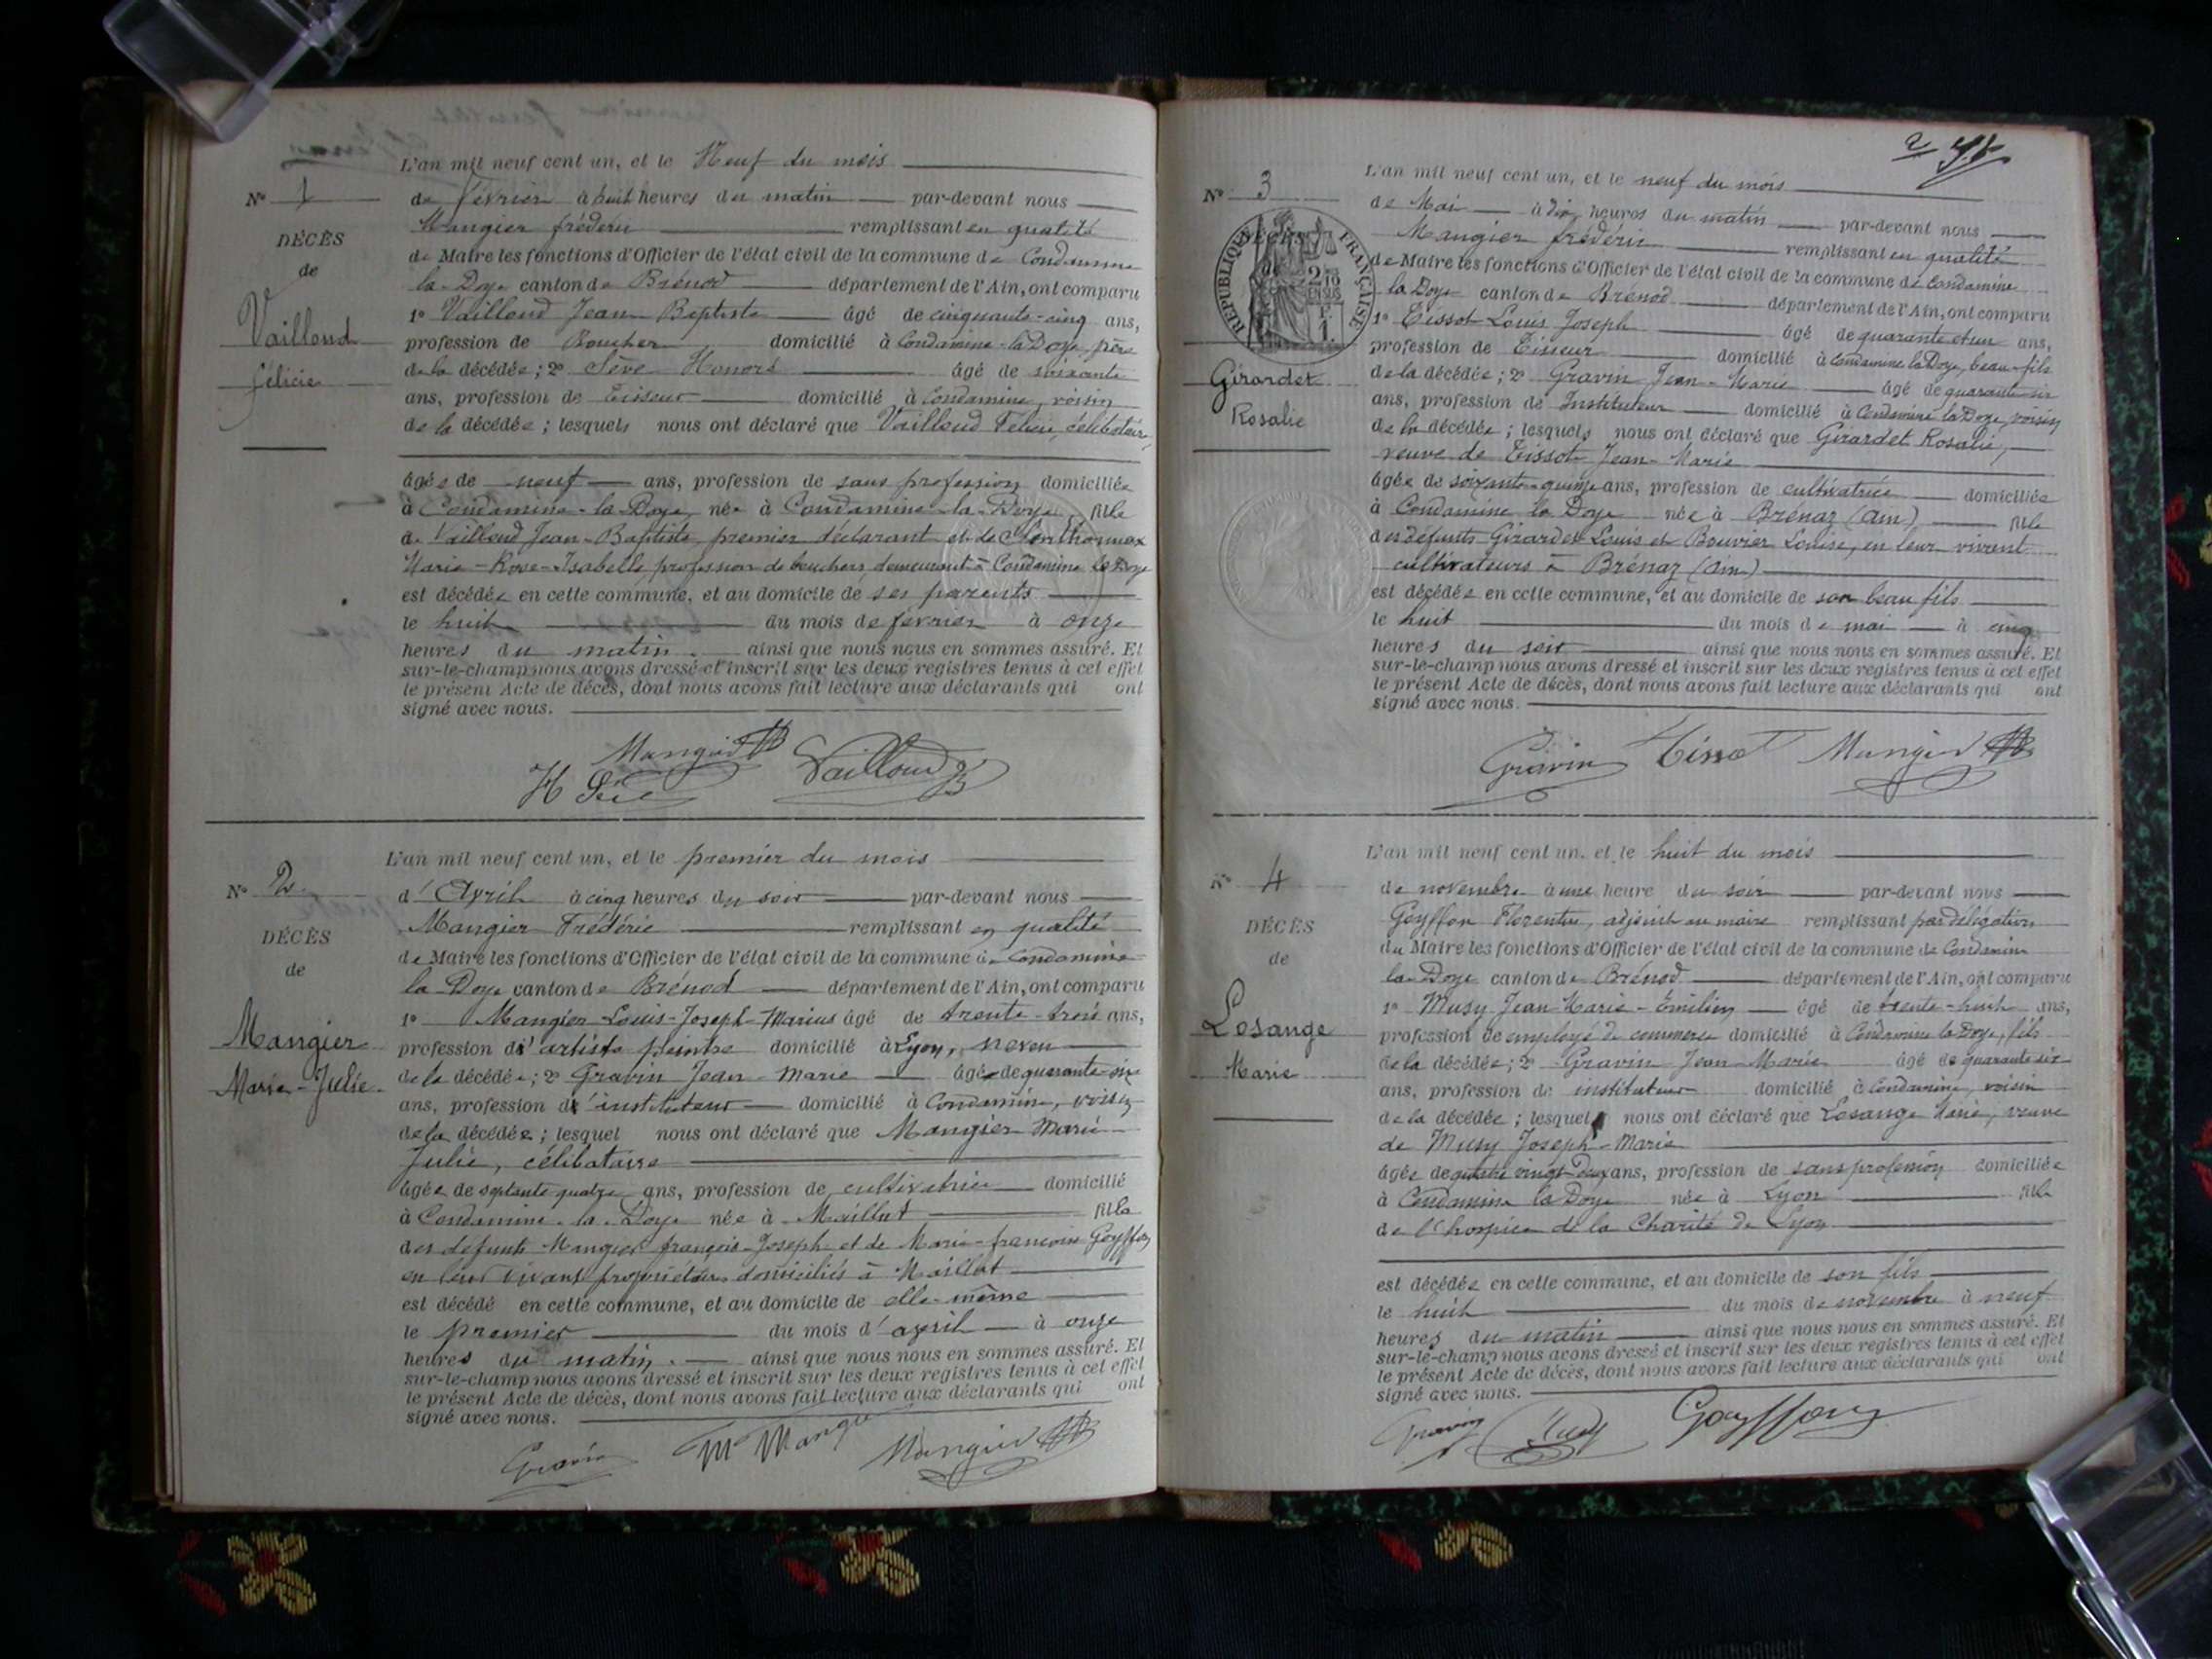 L'an mil neuf cent un, et le Neuf du mois
N° 1
de février à huit heures du matin par-devant nous
Mangier frédéric remplissant en qualité
DÉCÈS
de Maire les fonctions d'Officier de l'état civil de la commune de Condamine
de
la Doye canton de Brénod département de l'Ain, ont comparu
Vailloud
1° Vailloud Jean Baptiste âgé de cinquante-cinq ans,
profession de Boucher domicilié à Condamine-la-Doye, père
félicie
de la décédée; 2° Sève Honoré âgé de soixante
ans, profession de Tisseur domicilié à Condamine, voisin
de la décédée; lesquels nous ont déclaré que Vailloud Félicie, célibataire,
âgée de neuf ans, profession de sans profession domiciliée
à Condamine-la-Doye, née à Condamine-la-Doye, fille
de Vailloud Jean-Baptiste, premier déclarant et de
Marie-Rose-Isabelle, profession de bouchers, demeurant à Condamine la Doye
est décédée en cette commune, et au domicile de ses parents
le huit du mois de février à onze
heures du matin. ainsi que nous nous en sommes assuré. Et
sur-le-champ nous avons dressé et inscrit sur les deux registres tenus à cet effet
le présent Acte de décès, dont nous avons fait lecture aux déclarants qui ont
signé avec nous.
Mangier
H Sève Vailloud
L'an mil neuf cent un, et le premier du mois
N° 2
d'Avril à cinq heures du soir par-devant nous
Mangier Frédéric remplissant en qualité
DÉCÈS
de Maire les fonctions d'Officier de l'état civil de la commune de Condamine
de
la Doye canton de Brénod département de l'Ain, ont comparu
1° Mangier Louis-Joseph-Marius âgé de trente-trois ans,
Mangier
profession d'artiste peintre domicilié à Lyon, neveu
Marie-Julie
de la décédée; 2° Gravin Jean-Marie âgé de quarante-six
ans, profession d'instituteur domicilié à Condamine, voisin
de la décédée; lesquel nous ont déclaré que Mangier Marie
Julie, célibataire
âgée de septante quatre ans, profession de cultivatrice domicilié
à Condamine-la-Doye née à Maillat fille
des défunts Mangier françois-Joseph et de Marie-françoise Goyffon
en leur vivant propriétaires domiciliés à Maillat
est décédé en cette commune, et au domicile de elle-même
le premier du mois d'avril à onze
heures du matin. ainsi que nous nous en sommes assuré. Et
sur-le-champ nous avons dressé et inscrit sur les deux registres tenus à cet effet
le présent Acte de décès, dont nous avons fait lecture aux déclarants qui ont
signé avec nous.
Gravin M Mangier Mangier
2
L'an mil neuf cent un, et le neuf du mois
N° 3
de Mai à dix heures du matin par-devant nous
Mangier frédéric remplissant en qualité
RÉPUBLIQUE FRANÇAISE
de Maire les fonctions d'Officier de l'état civil de la commune de Condamine
la Doye canton de Brénod département de l'Ain, ont comparu
1° Tissot Louis Joseph âgé de quarante et un ans,
profession de Tisseur domicilié à Condamine la Doye, beau-fils
Girardet
de la décédée; 2° Gravin Jean-Marie âgé de quarante-six
ans, profession de Instituteur domicilié à Condamine la Doye, voisin
Rosalie
de la décédée; lesquels nous ont déclaré que Girardet Rosalie,
veuve de Tissot Jean-Marie
âgée de soixante-quinze ans, profession de cultivatrice domiciliée
à Condamine la Doye née à Brénaz (Ain), fille
des défunts Girardet Louis et Bouvier Louise, en leur vivant
cultivateurs à Brénaz (Ain)
est décédée en cette commune, et au domicile de son beau fils
le huit du mois de mai à cinq
heures du soir ainsi que nous nous en sommes assuré. Et
sur-le-champ nous avons dressé et inscrit sur les deux registres tenus à cet effet
le présent Acte de décès, dont nous avons fait lecture aux déclarants qui ont
signé avec nous.
Gravin Tissot Mangier
L'an mil neuf cent un, et le huit du mois
N° 4
de novembre à une heure du soir par-devant nous
Goyffon Florentin, adjoint au maire remplissant par délégation
DÉCÈS
du Maire les fonctions d'Officier de l'état civil de la commune de Condamine
de
la Doye canton de Brénod département de l'Ain, ont comparu
1° Musy Jean Marie-Emilien âgé de trente-huit ans,
Losange
profession de employé de commerce domicilié à Condamine la Doye, fils
Marie
de la décédée; 2° Gravin Jean Marie âgé de quarante six
ans, profession de instituteur domicilié à Condamine, voisin
de la décédée; lesquels nous ont déclaré que Losange Marie, veuve
de Musy Joseph-Marie
âgée de quatre vingt deux ans, profession de sans profession domiciliée
à Condamine la Doye née à Lyon fille
de l'hospice de la Charité de Lyon
est décédée en cette commune, et au domicile de son fils
le huit du mois de novembre à neuf
heures du matin ainsi que nous nous en sommes assuré. Et
sur-le-champ nous avons dressé et inscrit sur les deux registres tenus à cet effet
le présent Acte de décès, dont nous avons fait lecture aux déclarants qui ont
signé avec nous.
Gravin Musy Goyffon